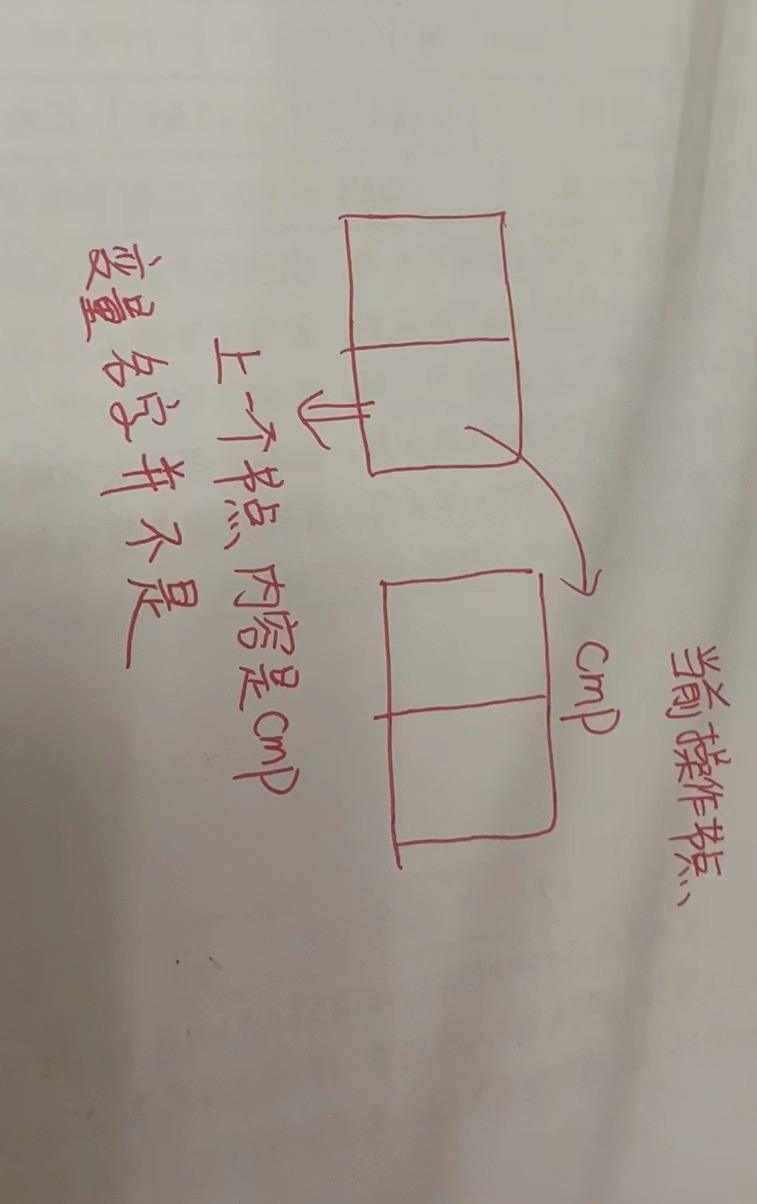 当前操作节点
cmp
上一个节点内容是cmp
变量名字并不是